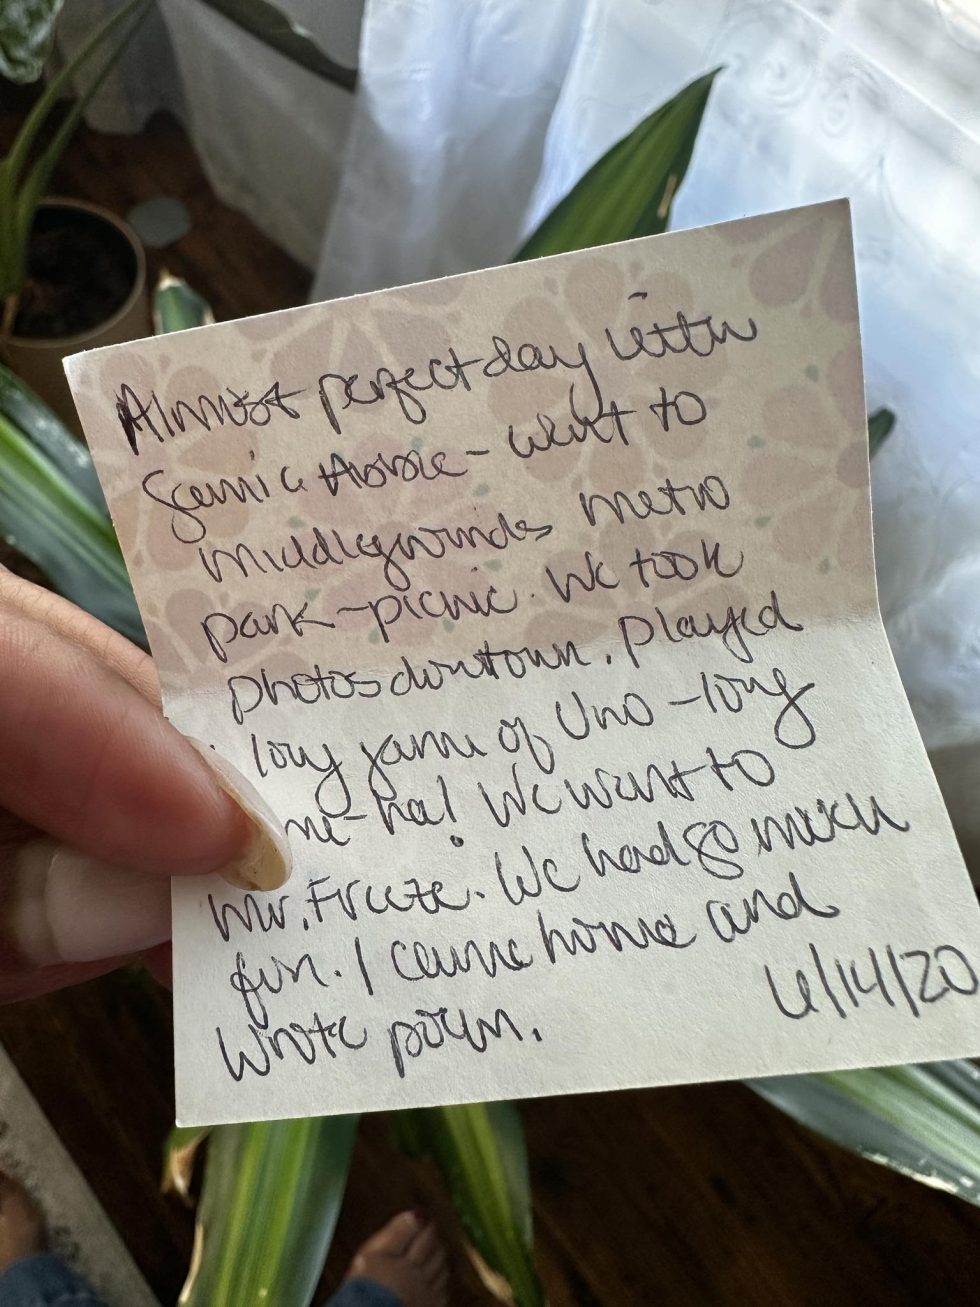 Almost perfect day with
- went to
metro
park - picnic. We took
photos downtown. Played
long game of Uno - long
me - ha! We went to
Mr. Freeze. We had so much
fun. I came home and
wrote poem.
6/14/20